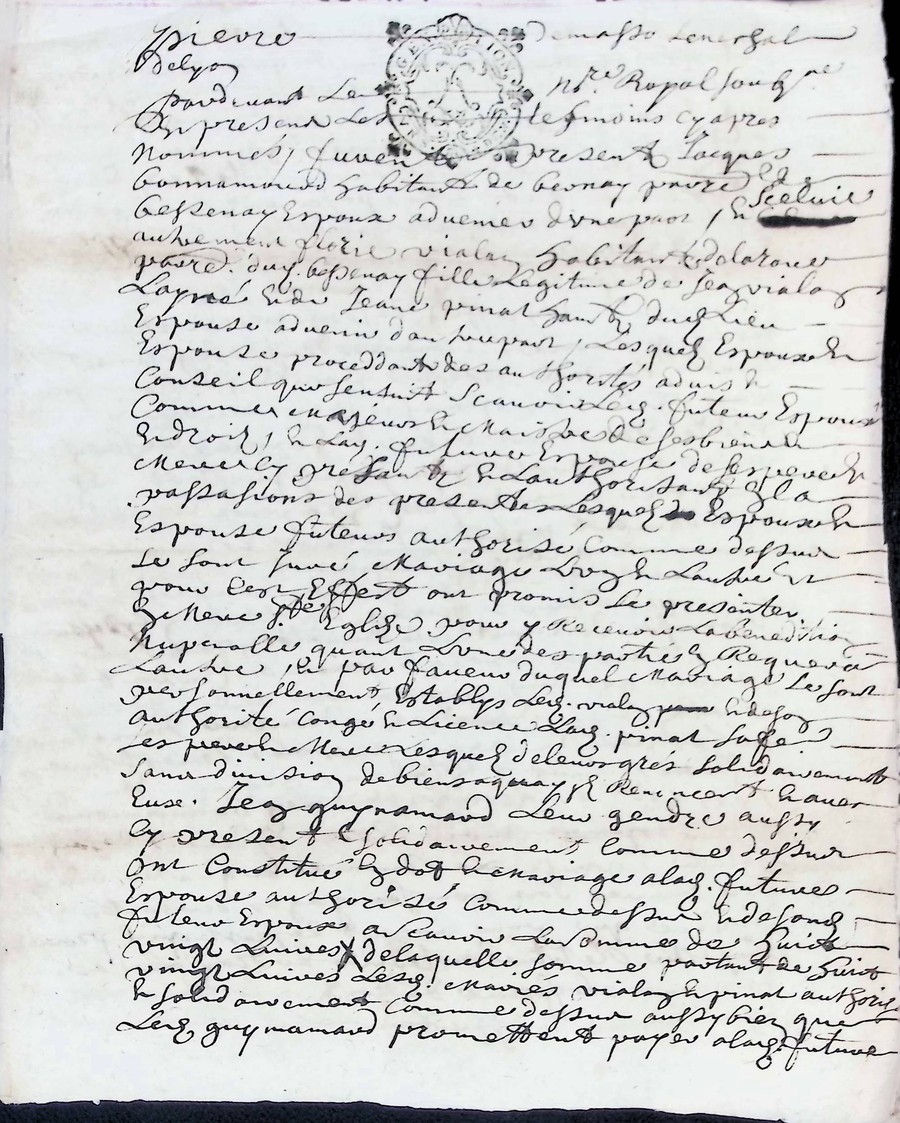 pierre Demasso Seneschal
Delyon
pardevant Le Nre. Royal soubsne
En presence Les tesmoins cy apres
Nommes, fuvent present Jacques
bonnamoud habitant de bernay parre. de
bessenay Espoux advenier dune part, Et Sceluie
autrement florie vialay habitante delarouer
parre. dud. bessenay fille Legitime de Jean vialay
Layné Et de Jeane pinat hantz dud. Lieu
Espouse advenir dautre part, Lesquelz Espoux Et
Espouse proceddantz des authorités advis Et
Conseil que sensuit Scavoir Led. futeur Espoux
Comme Majeur Et Maistre de ses biens Et
droitz, Et Lad. future Espouse de ses pere Et
Mere Cy presantz Et Lauthorisantz a La
passasions des presentes Lesquelz Espoux Et
Espouse futeurs authorisé Comme dessus
Se sont Juré Mariage Lun a Lautre Et
pour Cest Effect ont promis Se presenter
En Mere Ste. Eglize pour y Recevoir La benediction
Nuptialle quant Lune des parties En Requerera
Lautre, Et par faveur duquel Mariage Se sont
personnellement Establys Led. vialay Et de son
authorité Congé Et Licence Lad. pinat sa fe.
ses pere Et Mere Lesquelz de leurs grés solidairement
sans division de biens a quay ilz Renoncent Et avec
Eux. Jean guynamaud Leur gendre aussy
Cy present solidairement Comme dessus
Ont Constitué En dot Et Mariage a lad. future
Espouse authorisé Comme dessus Et de sond.
futeur Espoux a Scavoir La somme de huict
vingt Livres de laquelle somme partant de huict
vingt Livres Lesd. Mariés vialay Et pinat authorisé
Et solidairement Comme dessus aussy bien que
Led. guynamaud promettent payer a lad. future